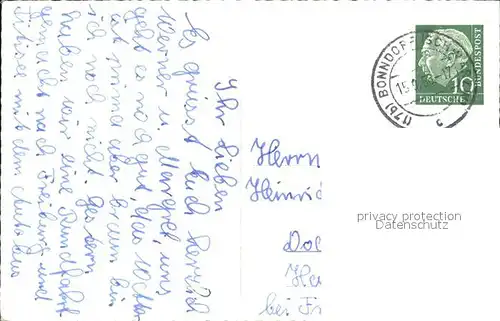 Ihr Lieben
Es grüsst Euch herzlich
Werner u. Margret, uns
geht es noch gut, das Wetter
ist prima aber braun bin
ich noch nicht. Gestern
haben wir eine Rundfahrt
gemacht nach Freiburg und
Titisee mit dem Autobus
Herrn
Heinric
Dol
Ha
bei Fr
(17b) BONNDORF (SCHW
15.
c
10
DEUTSCHE
BUNDESPOST
privacy protection
Datenschutz